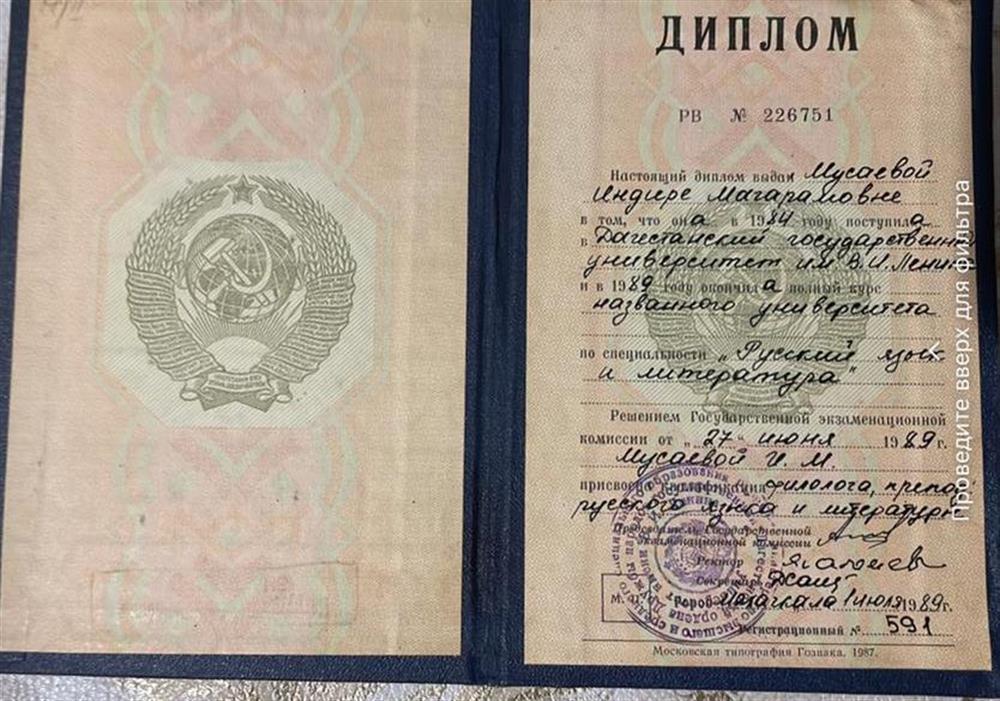 ДИПЛОМ
РВ № 226751
Настоящий диплом выдан Мусаевой
Индире Магарамовне
в том, что она в 1984 году поступила
в Дагестанский государственный
университет им В.И.Ленина
и в 1989 году окончила полный курс
названного университета
по специальности „Русский язык
и литература"
Решением Государственной экзаменационной
комиссии от „27" июня 1989 г.
Мусаевой И. М.
присвоена квалификация филолога, препод
русского языка и литературы
Председатель Государственной
экзаменационной комиссии
Ректор
Секретарь
М. П. Город Махачкала 1 июля 1989 г.
Регистрационный № 591
Московская типография Гознака. 1987.
Проведите вверх для фильтра